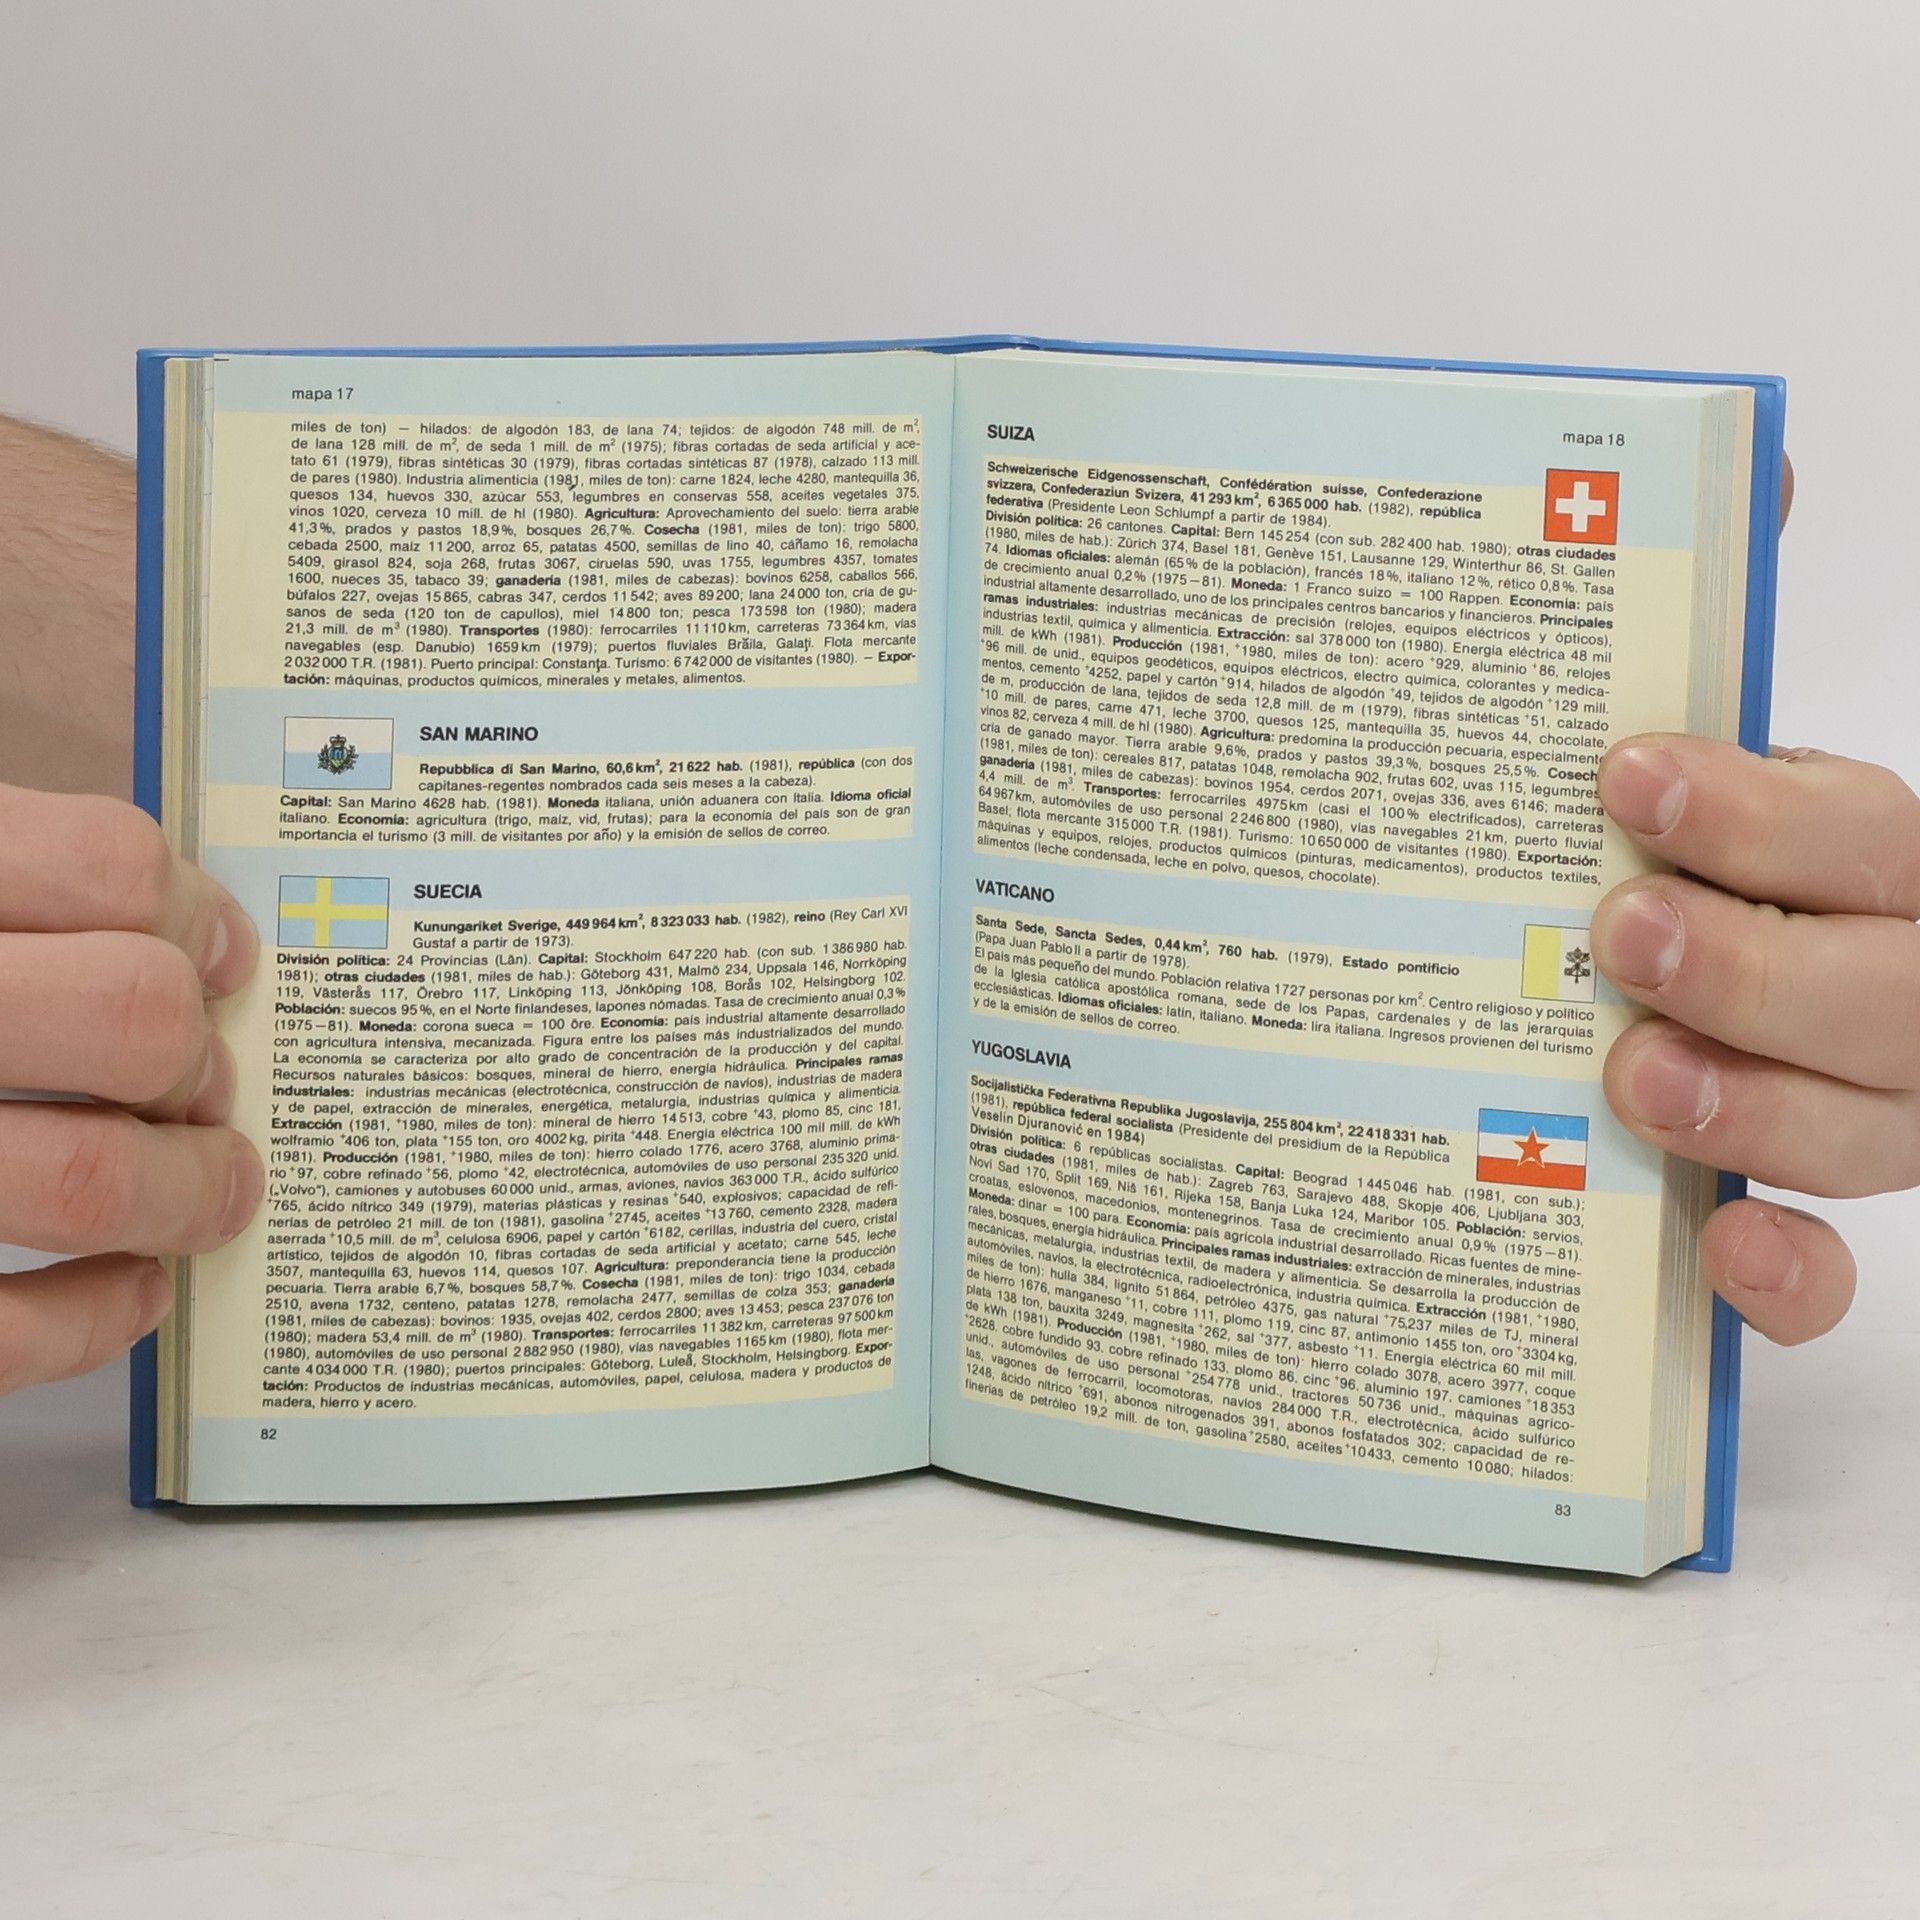 mapa 17
miles de ton) — hilados: de algodón 183, de lana 74; tejidos: de algodón 748 mill. de m²,
de lana 128 mill. de m², de seda 1 mill. de m² (1975); fibras cortadas de seda artificial y ace-
tato 61 (1979), fibras sintéticas 30 (1979), fibras cortadas sintéticas 87 (1978), calzado 113 mill.
de pares (1980). Industria alimenticia (1981, miles de ton): carne 1824, leche 4280, mantequilla 36,
quesos 134, huevos 330, azúcar 553, legumbres en conservas 558, aceites vegetales 375,
vinos 1020, cerveza 10 mill. de hl (1980). Agricultura: Aprovechamiento del suelo: tierra arable
41,3%, prados y pastos 18,9%, bosques 26,7%. Cosecha (1981, miles de ton): trigo 5800,
cebada 2500, maíz 11200, arroz 65, patatas 4500, semillas de lino 40, cáñamo 16, remolacha
5409, girasol 824, soja 268, frutas 3067, ciruelas 590, uvas 1755, legumbres 4357, tomates
1600, nueces 35, tabaco 39; ganadería (1981, miles de cabezas): bovinos 6258, caballos 566,
búfalos 227, ovejas 15865, cabras 347, cerdos 11542; aves 89200; lana 24000 ton, cría de gu-
sanos de seda (120 ton de capullos), miel 14800 ton; pesca 173598 ton (1980); madera
21,3 mill. de m³ (1980). Transportes (1980): ferrocarriles 11110km, carreteras 73364km, vías
navegables (esp. Danubio) 1659km (1979); puertos fluviales Brăila, Galaţi. Flota mercante
2032000 T.R. (1981). Puerto principal: Constanţa. Turismo: 6742000 de visitantes (1980). — Expor-
tación: máquinas, productos químicos, minerales y metales, alimentos.
SAN MARINO
Repubblica di San Marino, 60,6km², 21622 hab. (1981), república (con dos
capitanes-regentes nombrados cada seis meses a la cabeza).
Capital: San Marino 4628 hab. (1981). Moneda italiana, unión aduanera con Italia. Idioma oficial
italiano. Economía: agricultura (trigo, maíz, vid, frutas); para la economía del país son de gran
importancia el turismo (3 mill. de visitantes por año) y la emisión de sellos de correo.
SUECIA
Kunungariket Sverige, 449964km², 8323033 hab. (1982), reino (Rey Carl XVI
Gustaf a partir de 1973).
División política: 24 Provincias (Län). Capital: Stockholm 647220 hab. (con sub. 1386980 hab.
1981); otras ciudades (1981, miles de hab.): Göteborg 431, Malmö 234, Uppsala 146, Norrköping
119, Västerås 117, Örebro 117, Linköping 113, Jönköping 108, Borås 102, Helsingborg 102.
Población: suecos 95%, en el Norte finlandeses, lapones nómadas. Tasa de crecimiento anual 0,3%
(1975—81). Moneda: corona sueca = 100 öre. Economía: país industrial altamente desarrollado
con agricultura intensiva, mecanizada. Figura entre los países más industrializados del mundo.
La economía se caracteriza por alto grado de concentración de la producción y del capital.
Recursos naturales básicos: bosques, mineral de hierro, energía hidráulica. Principales ramas
industriales: industrias mecánicas (electrotécnica, construcción de navíos), industrias de madera
y de papel, extracción de minerales, energética, metalurgia, industrias química y alimenticia.
Extracción (1981, ⁺1980, miles de ton): mineral de hierro 14513, cobre ⁺43, plomo 85, cinc 181,
wolframio ⁺406 ton, plata ⁺155 ton, oro 4002kg, pirita ⁺448. Energía eléctrica 100 mil mill. de kWh
(1981). Producción (1981, ⁺1980, miles de ton): hierro colado 1776, acero 3768, aluminio prima-
rio ⁺97, cobre refinado ⁺56, plomo ⁺42, electrotécnica, automóviles de uso personal 235320 unid.
(„Volvo“), camiones y autobuses 60000 unid., armas, aviones, navíos 363000 T.R., ácido sulfúrico
⁺765, ácido nítrico 349 (1979), materias plásticas y resinas ⁺540, explosivos; capacidad de refi-
nerías de petróleo 21 mill. de ton (1981), gasolina ⁺2745, aceites ⁺13760, cemento 2328, madera
aserrada ⁺10,5 mill. de m³, celulosa 6906, papel y cartón ⁺6182, cerillas, industria del cuero, cristal
artístico, tejidos de algodón 10, fibras cortadas de seda artificial y acetato; carne 545, leche
3507, mantequilla 63, huevos 114, quesos 107. Agricultura: preponderancia tiene la producción
pecuaria. Tierra arable 6,7%, bosques 58,7%. Cosecha (1981, miles de ton): trigo 1034, cebada
2510, avena 1732, centeno, patatas 1278, remolacha 2477, semillas de colza 353; ganadería
(1981, miles de cabezas): bovinos: 1935, ovejas 402, cerdos 2800; aves 13453; pesca 237076 ton
(1980); madera 53,4 mill. de m³ (1980). Transportes: ferrocarriles 11382km, carreteras 97500km
(1980), automóviles de uso personal 2882950 (1980), vías navegables 1165km (1980), flota mer-
cante 4034000 T.R. (1980); puertos principales: Göteborg, Luleå, Stockholm, Helsingborg. Expor-
tación: Productos de industrias mecánicas, automóviles, papel, celulosa, madera y productos de
madera, hierro y acero.
82
SUIZA
mapa 18
Schweizerische Eidgenossenschaft, Confédération suisse, Confederazione
svizzera, Confederaziun Svizera, 41293km², 6365000 hab. (1982), república
federativa (Presidente Leon Schlumpf a partir de 1984).
División política: 26 cantones. Capital: Bern 145254 (con sub. 282400 hab. 1980); otras ciudades
(1980, miles de hab.): Zürich 374, Basel 181, Genève 151, Lausanne 129, Winterthur 86, St. Gallen
74. Idiomas oficiales: alemán (65% de la población), francés 18%, italiano 12%, rético 0,8%. Tasa
de crecimiento anual 0,2% (1975—81). Moneda: 1 Franco suizo = 100 Rappen. Economía: país
industrial altamente desarrollado, uno de los principales centros bancarios y financieros. Principales
ramas industriales: industrias mecánicas de precisión (relojes, equipos eléctricos y ópticos),
industrias textil, química y alimenticia. Extracción: sal 378000 ton (1980). Energía eléctrica 48 mil
mill. de kWh (1981). Producción (1981, ⁺1980, miles de ton): acero ⁺929, aluminio ⁺86, relojes
⁺96 mill. de unid., equipos geodéticos, equipos eléctricos, electro química, colorantes y medica-
mentos, cemento ⁺4252, papel y cartón ⁺914, hilados de algodón ⁺49, tejidos de algodón ⁺129 mill.
de m, producción de lana, tejidos de seda 12,8 mill. de m (1979), fibras sintéticas ⁺51, calzado
⁺10 mill. de pares, carne 471, leche 3700, quesos 125, mantequilla 35, huevos 44, chocolate,
vinos 82, cerveza 4 mill. de hl (1980). Agricultura: predomina la producción pecuaria, especialmente
cría de ganado mayor. Tierra arable 9,6%, prados y pastos 39,3%, bosques 25,5%. Cosech
(1981, miles de ton): cereales 817, patatas 1048, remolacha 902, frutas 602, uvas 115, legumbres
ganadería (1981, miles de cabezas): bovinos 1954, cerdos 2071, ovejas 336, aves 6146; madera
4,4 mill. de m³. Transportes: ferrocarriles 4975km (casi el 100% electrificados), carreteras
64967km, automóviles de uso personal 2246800 (1980), vías navegables 21km, puerto fluvial
Basel; flota mercante 315000 T.R. (1981). Turismo: 10650000 de visitantes (1980). Exportación:
máquinas y equipos, relojes, productos químicos (pinturas, medicamentos), productos textiles,
alimentos (leche condensada, leche en polvo, quesos, chocolate).
VATICANO
Santa Sede, Sancta Sedes, 0,44km², 760 hab. (1979), Estado pontificio
(Papa Juan Pablo II a partir de 1978).
El país más pequeño del mundo. Población relativa 1727 personas por km². Centro religioso y político
de la Iglesia católica apostólica romana, sede de los Papas, cardenales y de las jerarquías
ecclesiásticas. Idiomas oficiales: latín, italiano. Moneda: lira italiana. Ingresos provienen del turismo
y de la emisión de sellos de correo.
YUGOSLAVIA
Socijalistička Federativna Republika Jugoslavija, 255804km², 22418331 hab.
(1981), república federal socialista (Presidente del presidium de la República
Veselin Djuranović en 1984)
División política: 6 repúblicas socialistas. Capital: Beograd 1445046 hab. (1981, con sub.);
otras ciudades (1981, miles de hab.): Zagreb 763, Sarajevo 488, Skopje 406, Ljubljana 303,
Novi Sad 170, Split 169, Niš 161, Rijeka 158, Banja Luka 124, Maribor 105. Población: servios,
croatas, eslovenos, macedonios, montenegrinos. Tasa de crecimiento anual 0,9% (1975—81).
Moneda: dinar = 100 para. Economía: país agrícola industrial desarrollado. Ricas fuentes de mine-
rales, bosques, energía hidráulica. Principales ramas industriales: extracción de minerales, industrias
mecánicas, metalurgia, industrias textil, de madera y alimenticia. Se desarrolla la producción de
automóviles, navíos, la electrotécnica, radioelectrónica, industria química. Extracción (1981, ⁺1980,
miles de ton): hulla 384, lignito 51864, petróleo 4375, gas natural ⁺75,237 miles de TJ, mineral
de hierro 1676, manganeso ⁺11, cobre 111, plomo 119, cinc 87, antimonio 1455 ton, oro ⁺3304kg,
plata 138 ton, bauxita 3249, magnesita ⁺262, sal ⁺377, asbesto ⁺11. Energía eléctrica 60 mil mill.
de kWh (1981). Producción (1981, ⁺1980, miles de ton): hierro colado 3078, acero 3977, coque
⁺2628, cobre fundido 93, cobre refinado 133, plomo 86, cinc ⁺96, aluminio 197, camiones ⁺18353
unid., automóviles de uso personal ⁺254778 unid., tractores 50736 unid., máquinas agríco-
las, vagones de ferrocarril, locomotoras, navíos 284000 T.R., electrotécnica, ácido sulfúrico
1248, ácido nítrico ⁺691, abonos nitrogenados 391, abonos fosfatados 302; capacidad de re-
finerías de petróleo 19,2 mill. de ton, gasolina ⁺2580, aceites ⁺10433, cemento 10080; hilados:
83